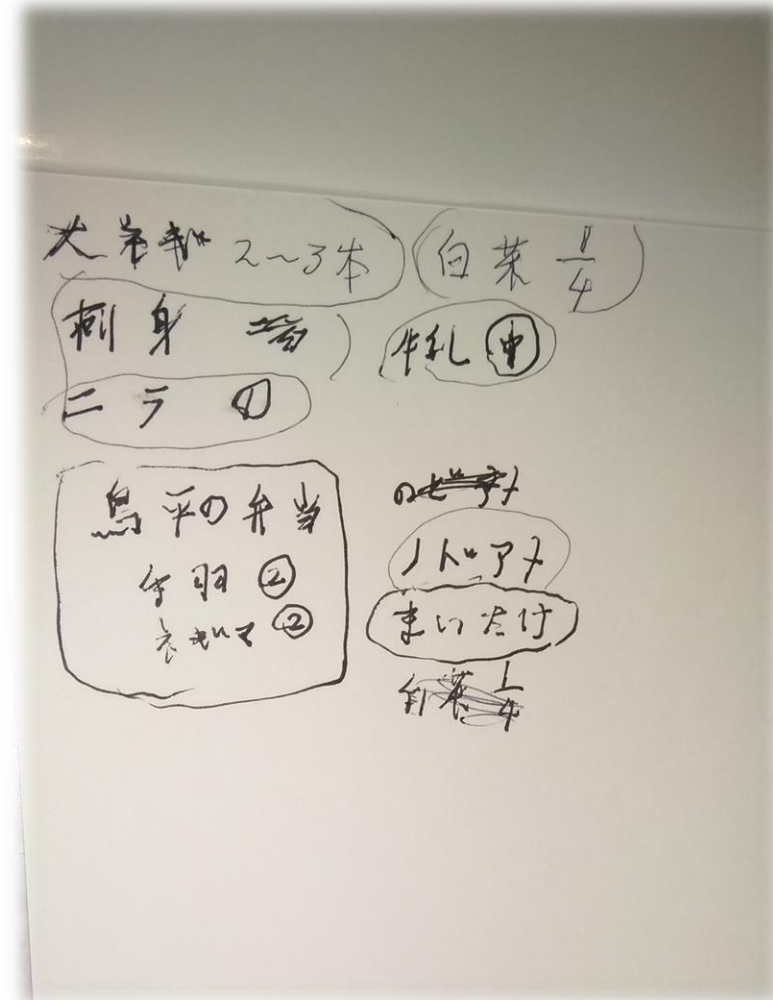 大ネギ 2〜3本
白菜 1/4
刺身
牛乳 中
ニラ ①
鳥平の弁当
手羽 ②
ネギマ ②
ノドアメ
まいたけ
白菜 1/4